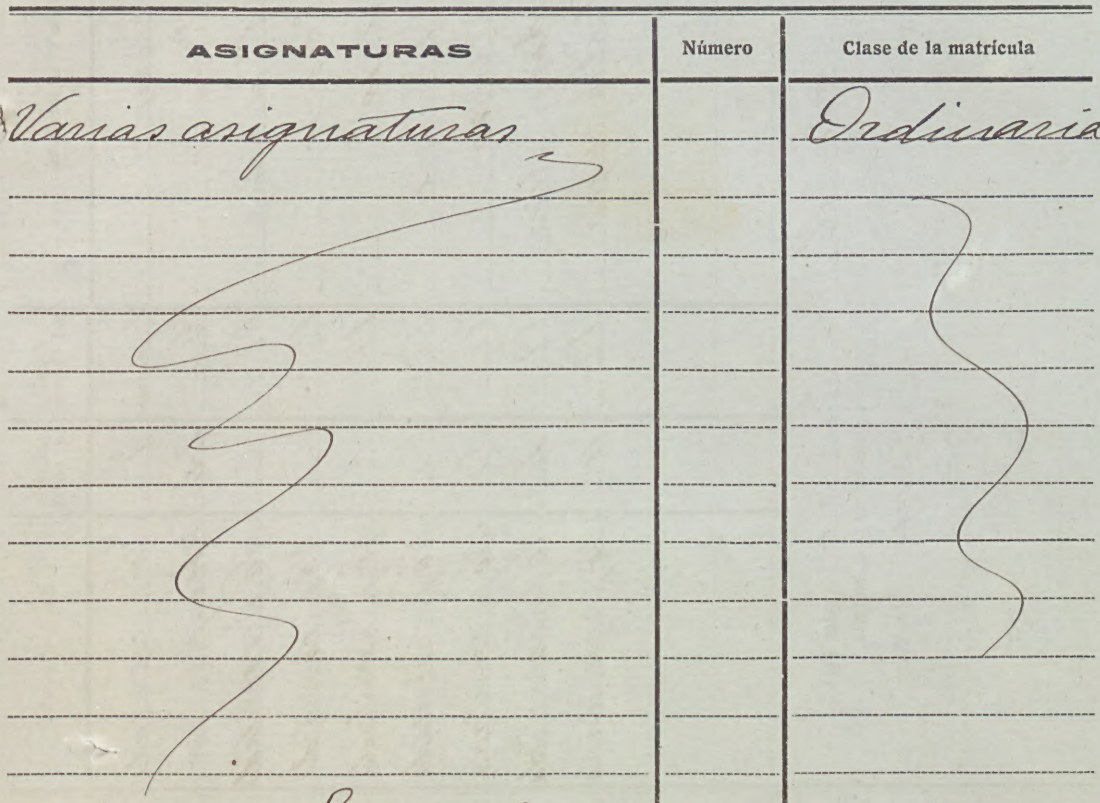 ASIGNATURAS Número Clase de la matrícula
Varias asignaturas Ordinaria